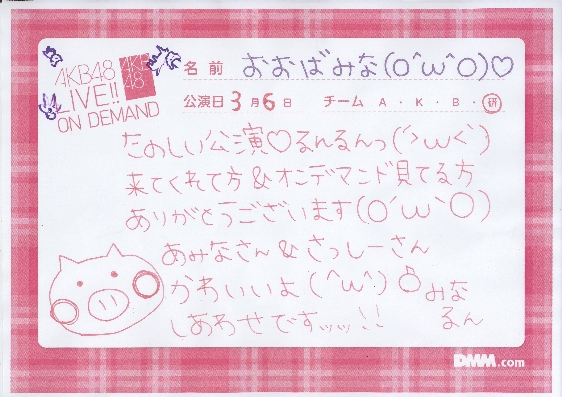 AKB48
LIVE!!
ON DEMAND
AKB
48
名前 おおばみな(O^ω^O)♡
公演日 3月6日 チーム A・K・B・研
たのしい公演♡るんるんっ(´>ω<`)
来てくれて方&オンデマンド見てる方
ありがとうございます(O´ω`O)
あみなさん&さっしーさん
かわいいよ(^ω^)
みな
るん
しあわせですッッ!!
DMM.com